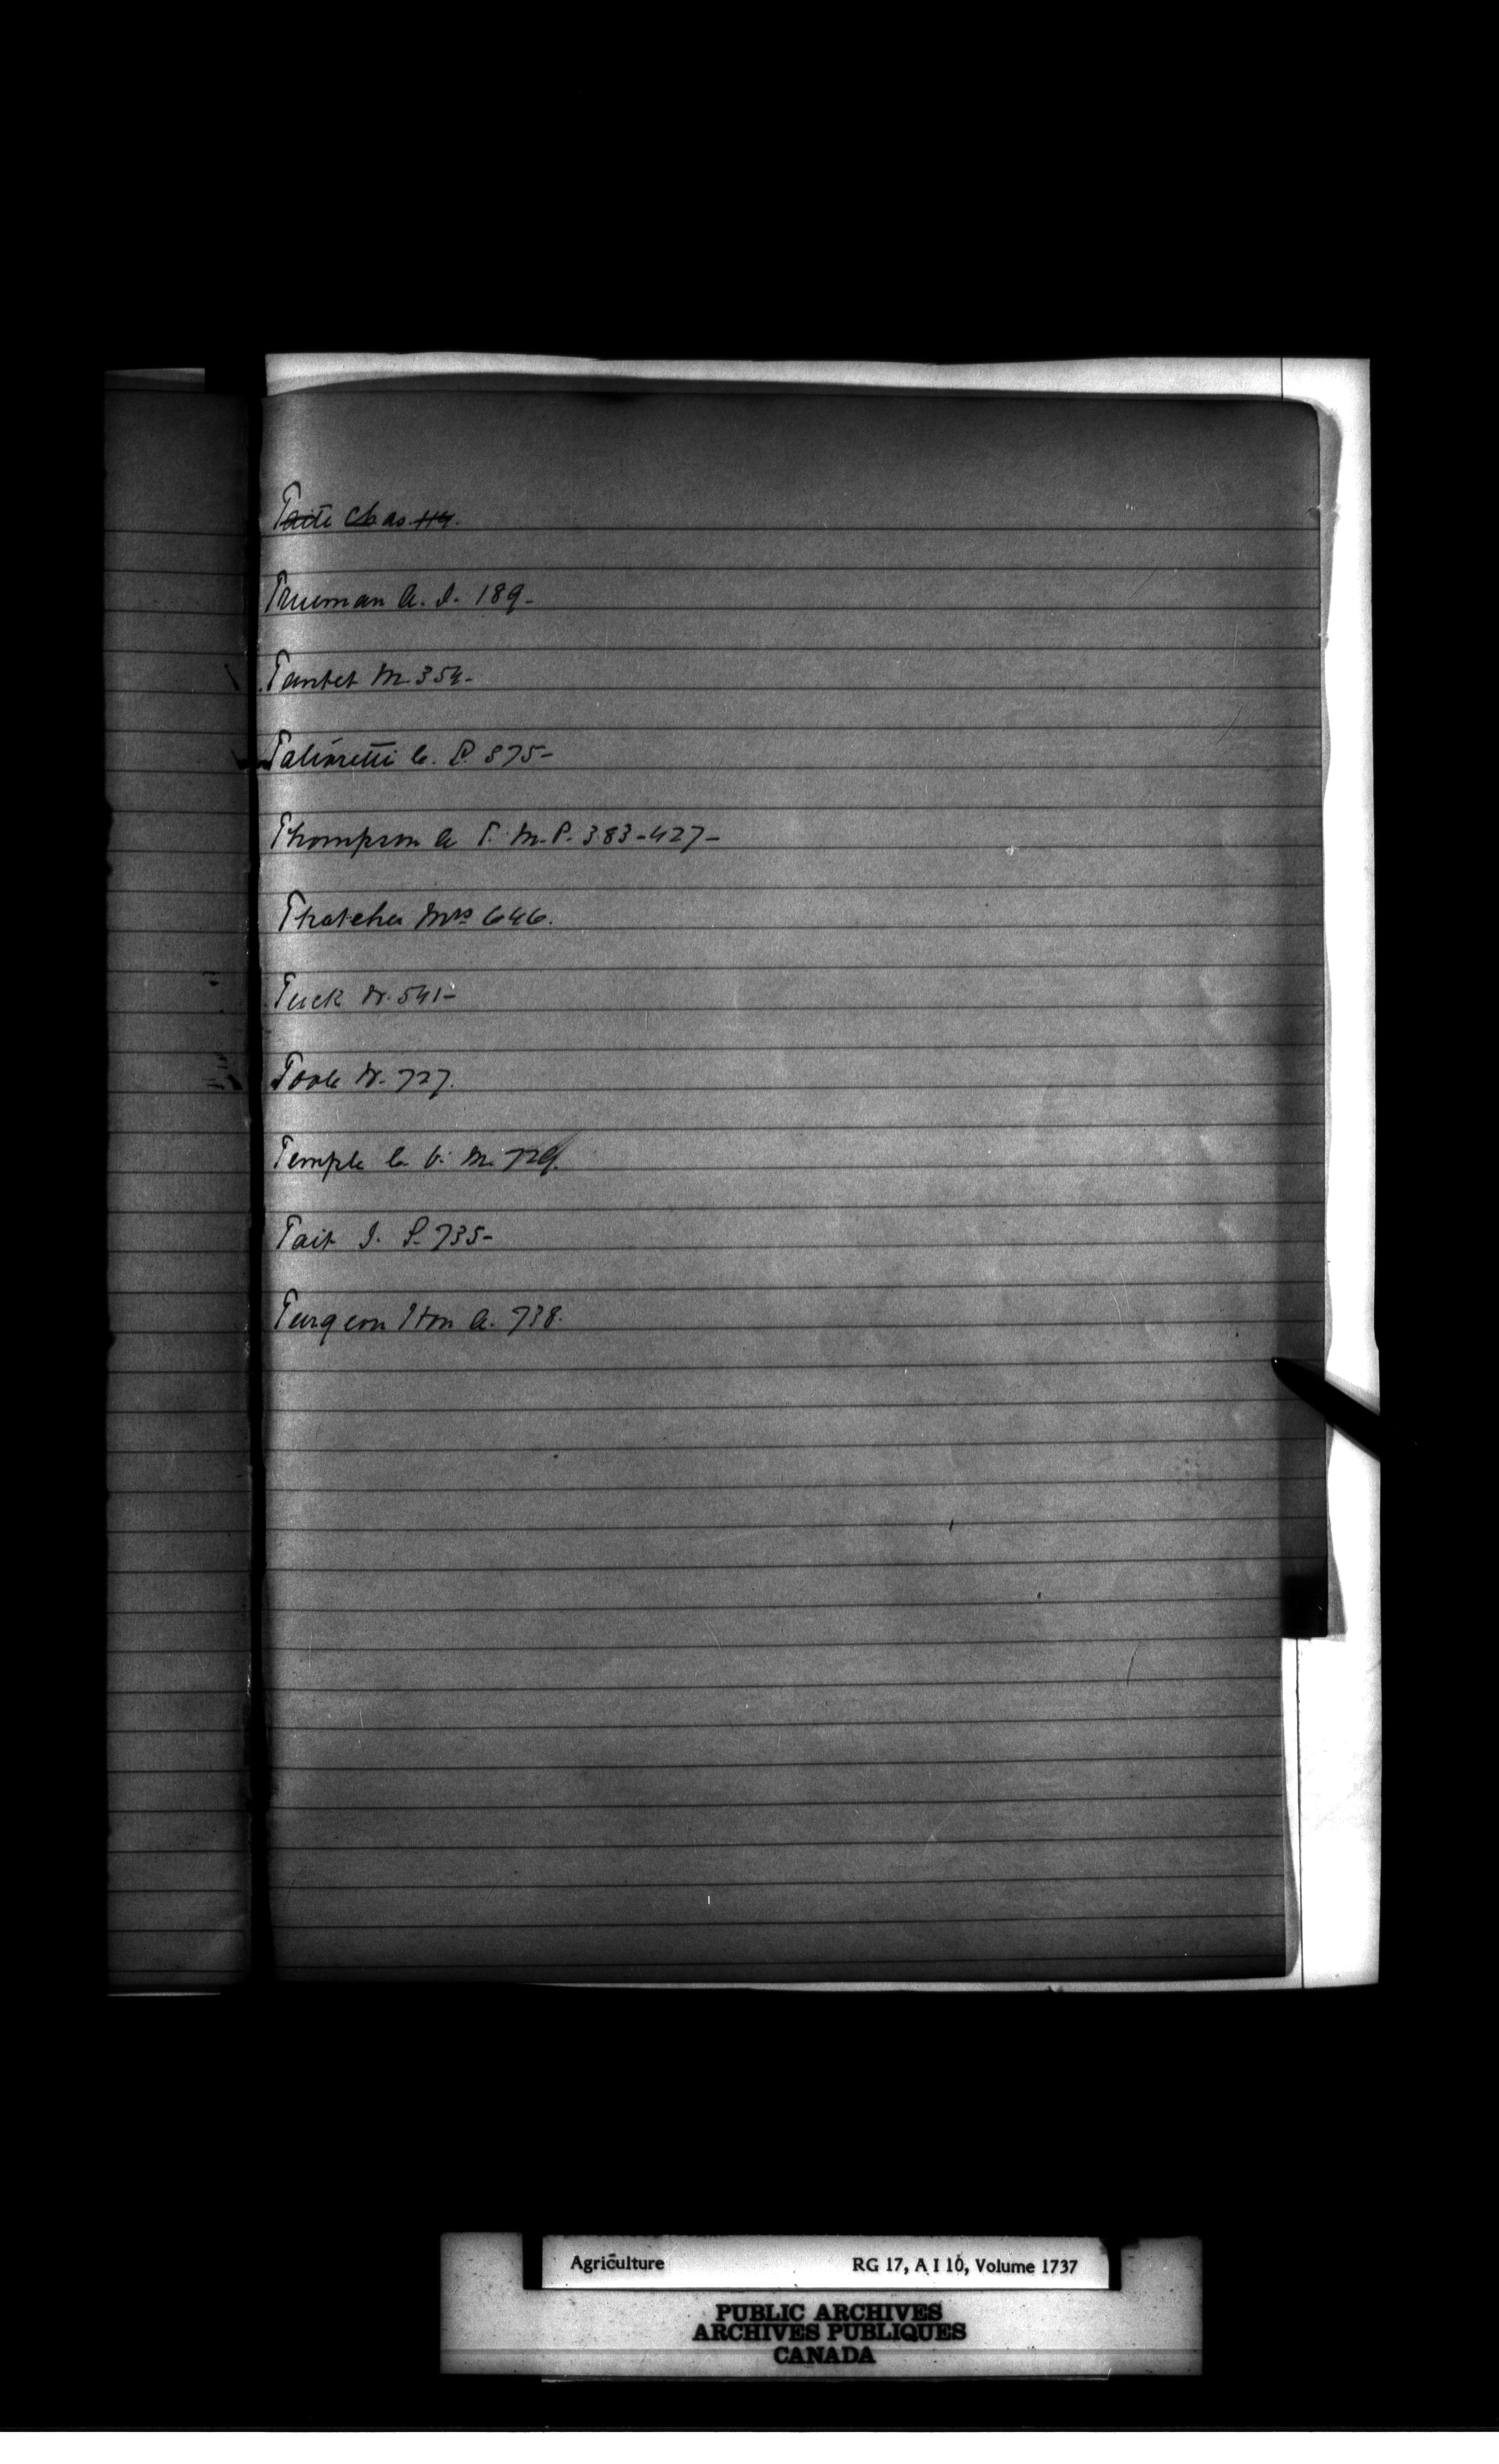 Taite Chas. 114.
Trueman A. I. 189-
Tantet M. 354-
Taliaretti C. P. 875-
Thompson A T. M.P. 383-427-
Thatcher Mrs 646.
Tuck W. 541-
Toole W. 727.
Temple C. V. M. 729.
Tait J. S. 735-
Turgeon Hon A. 738.
Agriculture RG 17, A I 10, Volume 1737
PUBLIC ARCHIVES
ARCHIVES PUBLIQUES
CANADA